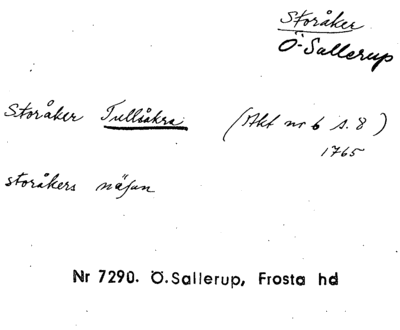 Storåker
Ö. Sallerup
Storåker Tullåkra (Akt nr 6 s. 8)
1765
storåkers näsan
Nr 7290. Ö. Sallerup, Frosta hd